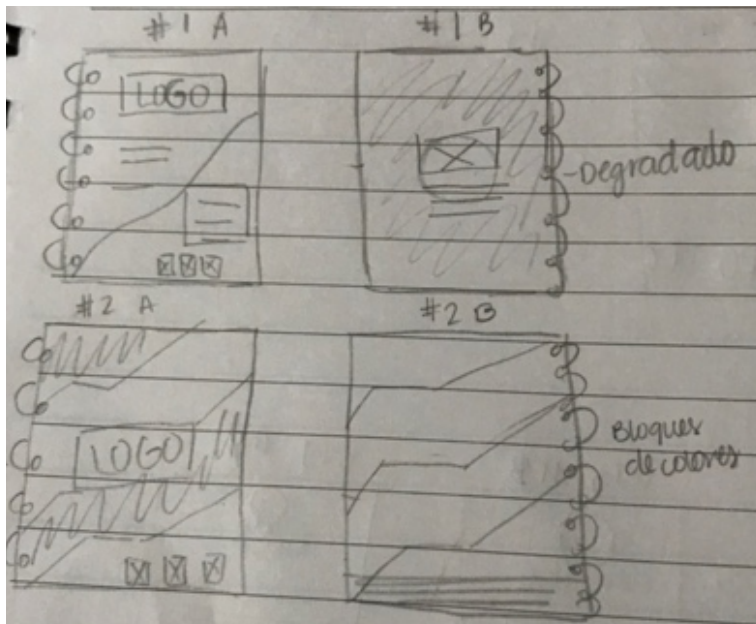 #1 A
#1 B
LOGO
-Degradado
#2 A
#2 B
LOGO
Bloques
de colores